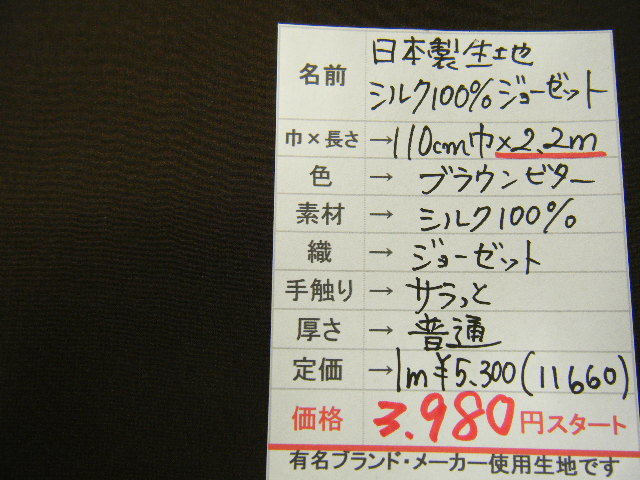 名前 日本製生地
シルク100%ジョーゼット
巾×長さ →110cm巾×2.2m
色 → ブラウンビター
素材 → シルク100%
織 → ジョーゼット
手触り → サラっと
厚さ → 普通
定価 →1m¥5.300(11660)
価格 3.980円スタート
有名ブランド・メーカー使用生地です